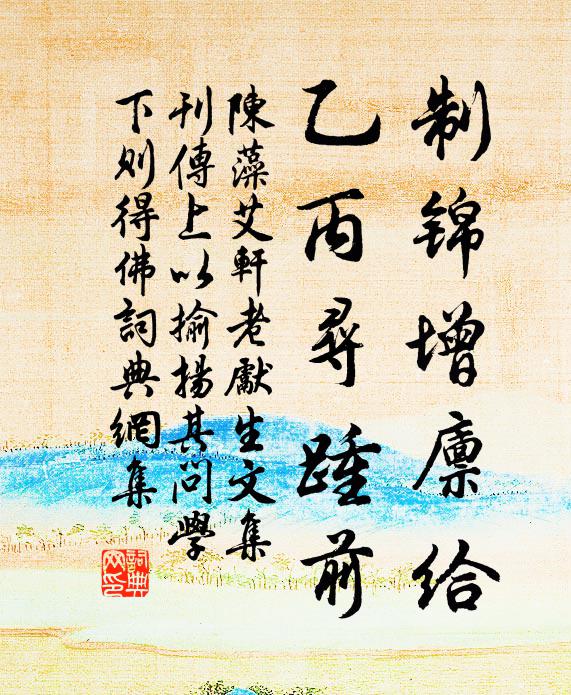 制錦增廩給
乙丙尋踵前
陳藻艾軒老獻生文集
刊傳上以揄揚其問學
下則得佛詞典網集
詞典網印